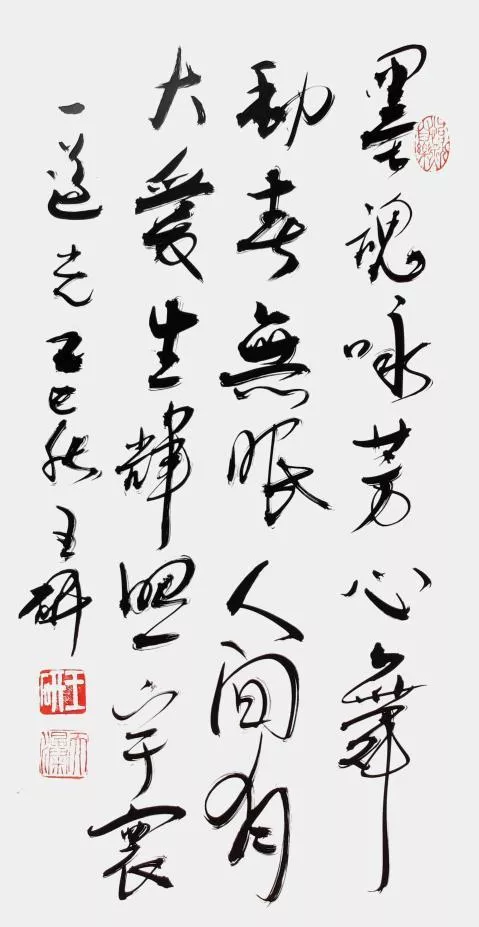 墨魂咏芳心舞
動春無眠人间有
大愛生輝照宇寰
一道光 乙巳秋 王研
王研